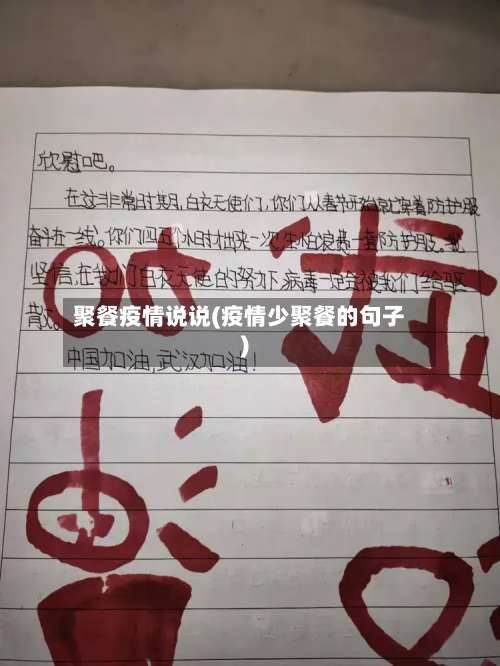 欣慰吧。
在这非常时期,白衣天使们,你们从春节开始就穿着防护服
奋斗在一线。你们四五个小时才出来一次,生怕浪费一套防护服。我
坚信,在我们白衣天使的努力下,病毒一定会被我们给驱
散
聚餐疫情说说(疫情少聚餐的句子
)
中国加油,武汉加油!